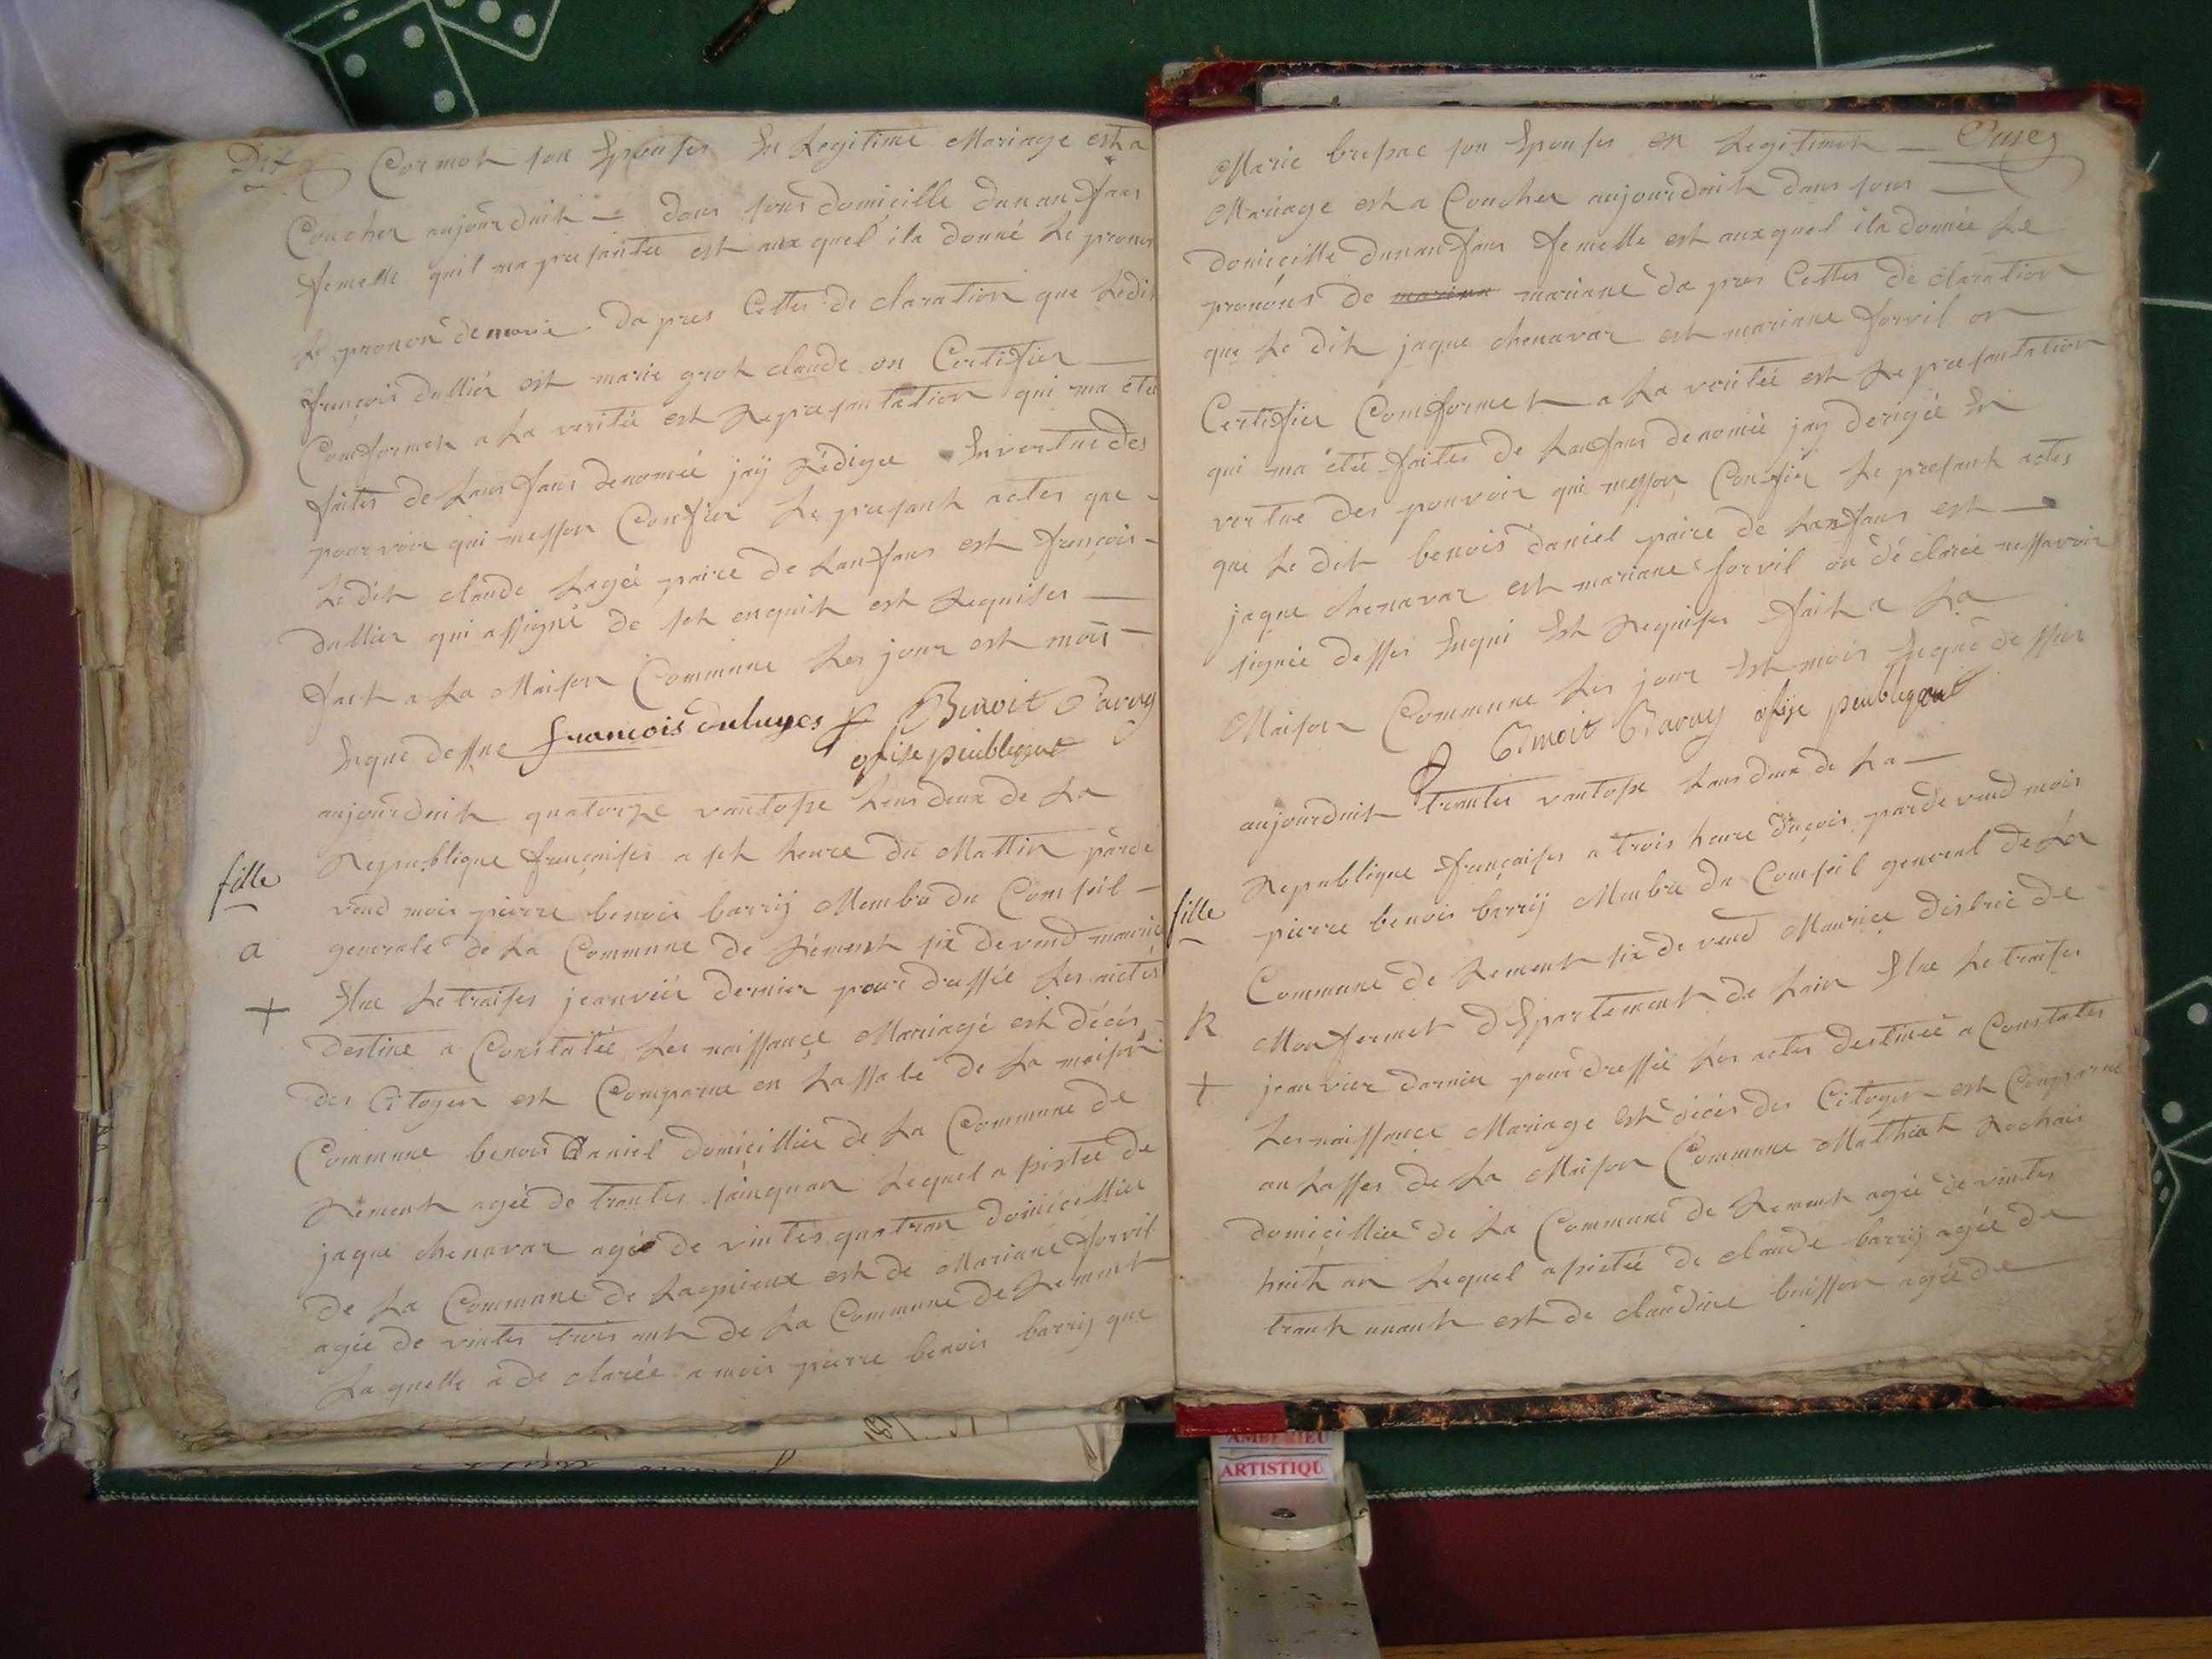 Dix
Cormot son Epouses En Legitime Mariage est a
Coucher aujourduit — dans sous domicille dunanfans
femelle quil ma presantee est aux quel ila donné Le pronon
Le pronon de marie da pres Cettes de claration que Ledit
françois dullier est marie grot claude on Certifier —
Comformet a La veritée est Represantation qui ma étée
faites de Lanfans denomée jay Rédigee Envertue des
pour voir qui messon Confier Le presant actes que -
Le dit claude Lagée paire de Lanfans est françois -
dullier qui assigné de set enquit est Requises —
fait a La Maison Commune Les jour est mois —
Enque dessue françois duluyes Benoit Baruy
ofise peubleque
aujourduit quatorze vantose Lans deux de La
Republique françaises a set heure du Mattin parde
fille
vend mois pierre benois barrij Membre du Comseil —
a
generale de La Commune de Rément six devend mauric
+
Elue Le traises jeanviér dernier pour dressée Les actes
destine a Constatée Les naissance Mariagé est décés -
des Citoyen est Comparue en Lassale de La maison
Commune benois daniel domicillier de La Commune de
Rement agée de trantes sainquan Lequel a sistée de
jaque chenavar agée de vintes quatran domicillier
de La Commune de Lagnieux est de Mariane forvil
agée de vintes trois ant de La Commune de Rement
La quelle a de clarée a mois pierre benois barrij que
Marie bressac son Epouses en Legitimet — Onze
Mariage est a Coucher aujourduit dans sous —
domicille dunanfans femelle est auxquel ila donnée Le
pronons de mariana mariane da pres Cettes de claration
que Le dit jaque chenavar est mariane forvil on
Certifier Comformet a La veritée est Represantation
qui ma étée faites de Lanfans denomée jay derigée En
vertue des pouvoir qui messon Confier Le presant actes
que Le dit benois daniel paire de Lanfans est —
jaque chenavar est mariane forvil on déclarée nessavoir
signée desses Enqui Est Requises fait a La
Maison Commune Les jour Est mois Enque dessue
Benoit Baruy ofise peubleque
aujourduit trantes vantose Lans deux de La —
Republique françaises a trois heure du soir parde vend mois
fille
pierre benois barrij Membre du Comseil general de La
Commune de Rement six de vend Maurice district de
R
Monfermet dEpartement de Lain Elue Le traises
+
jeanvier dernier pour dressée Les actes destinée a Constates
Les naissance Mariage est décés des Citoyen est Comparue
an Lasses de La Maison Commune Mathiat Rochais
domicillier de La Commune de Rement agée de vintes
huit an Lequel asistée de claude barrij agée de
trant unant est de claudine buisson agée de
AMBERIEU
ARTISTIQU